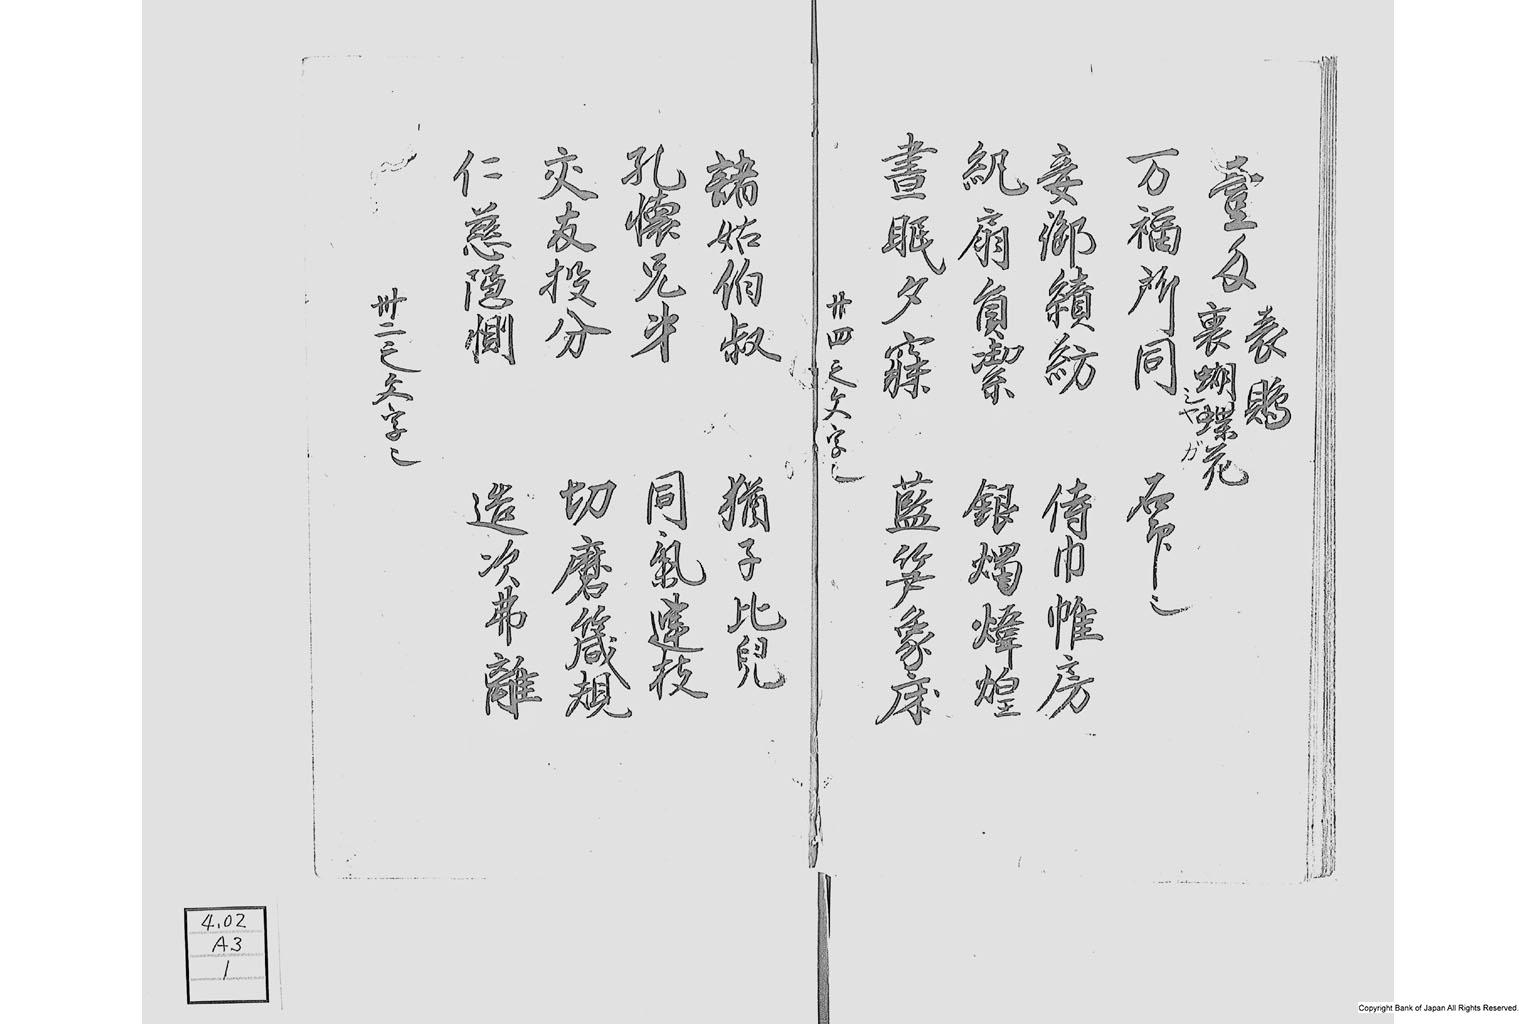 表
壹匁 裏 蝴蝶花
シャガ
万福所同
妾御績紡 侍巾帷房
紈扇員潔 銀燭煒煌
晝眠夕寐 藍笋象床
廿四之文字也
諸姑伯叔 猶子比兒
孔懷兄弟 同氣連枝
交友投分 切磨箴規
仁慈隠惻 造次弗離
卅二之文字也
4.02
A3
1
Copyright Bank of Japan All Rights Reserved.